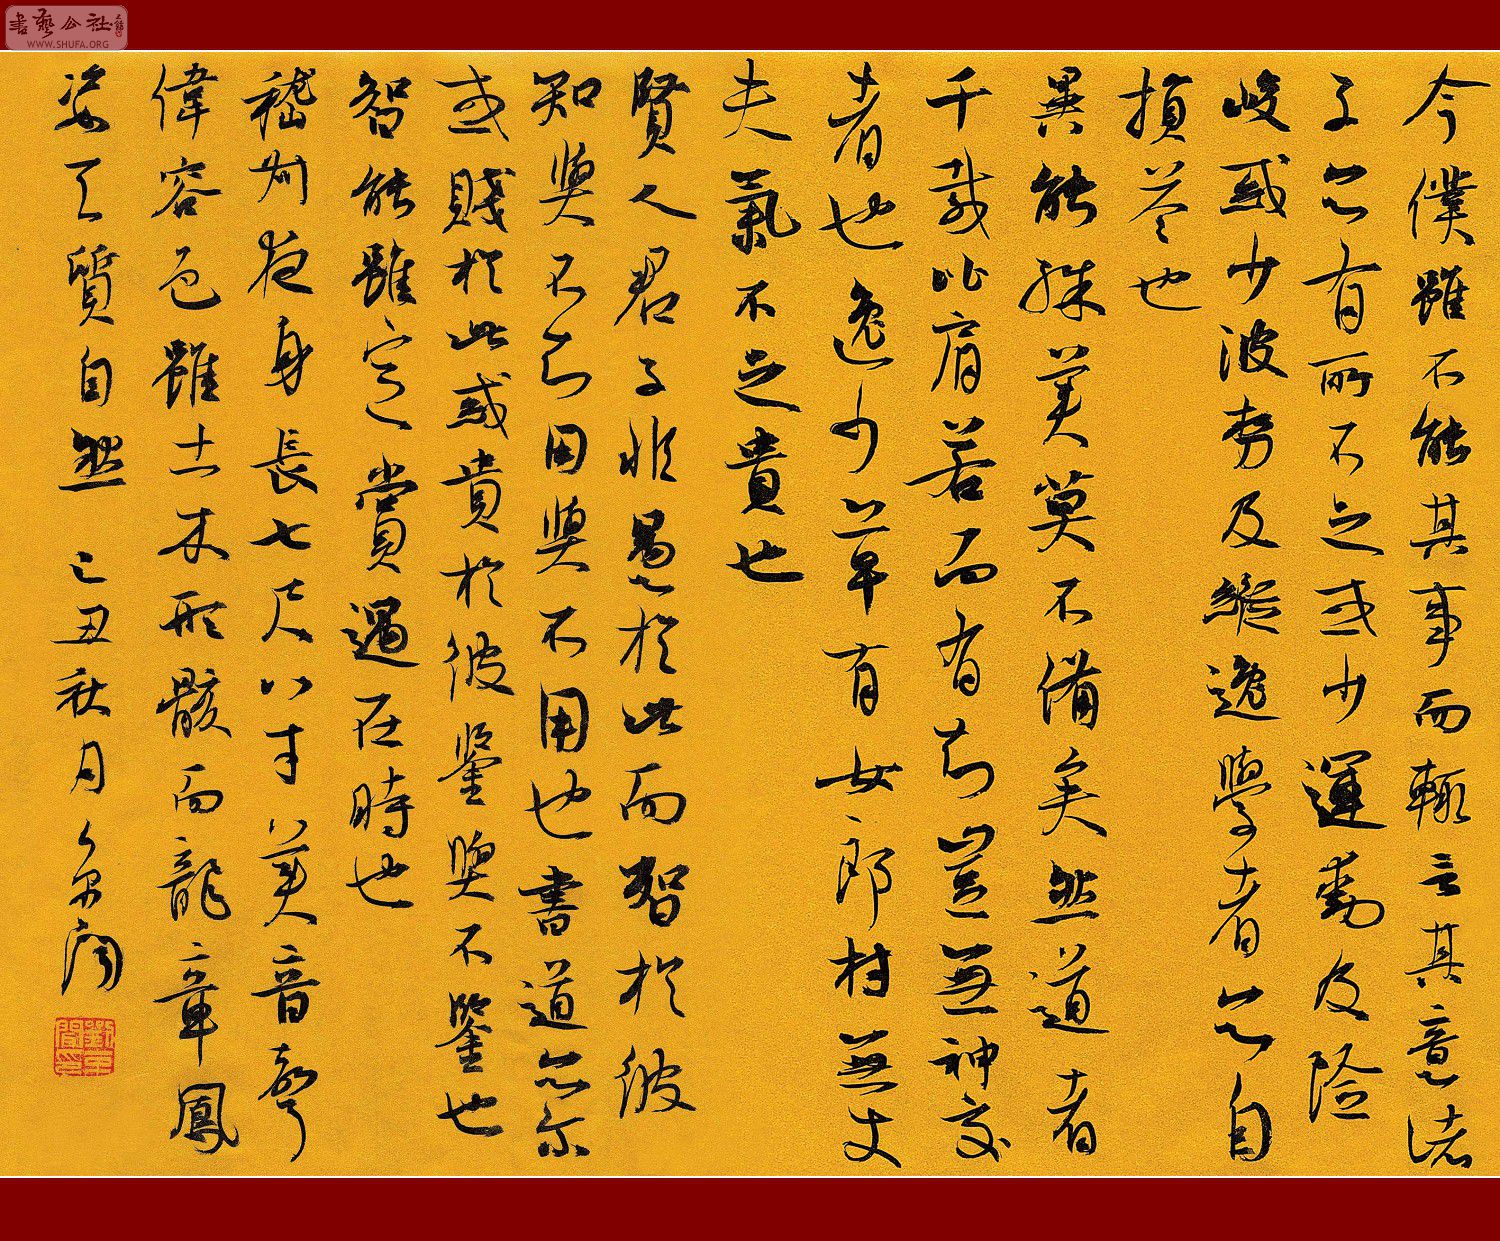 書藝公社
WWW.SHUFA.ORG
今僕雖不能其事而輒言其意諸
子亦有所不足或少運動及險
峻或少波势及縱逸學者宜自
損益也
異能殊美莫不備矣然道者
千載比肩若面有知豈無神交
者也逸少草有女郎材無丈
夫氣不足貴也
賢人君子非愚於此而智於彼
知與不知用與不用也書道亦爾
或賤於此或貴於彼鑒與不鑒也
智能雖定賞遇在時也
嵇叔夜身長七尺八寸美音聲
偉容色雖土木形骸而龍章鳳
姿天質自然 己丑秋月京聞